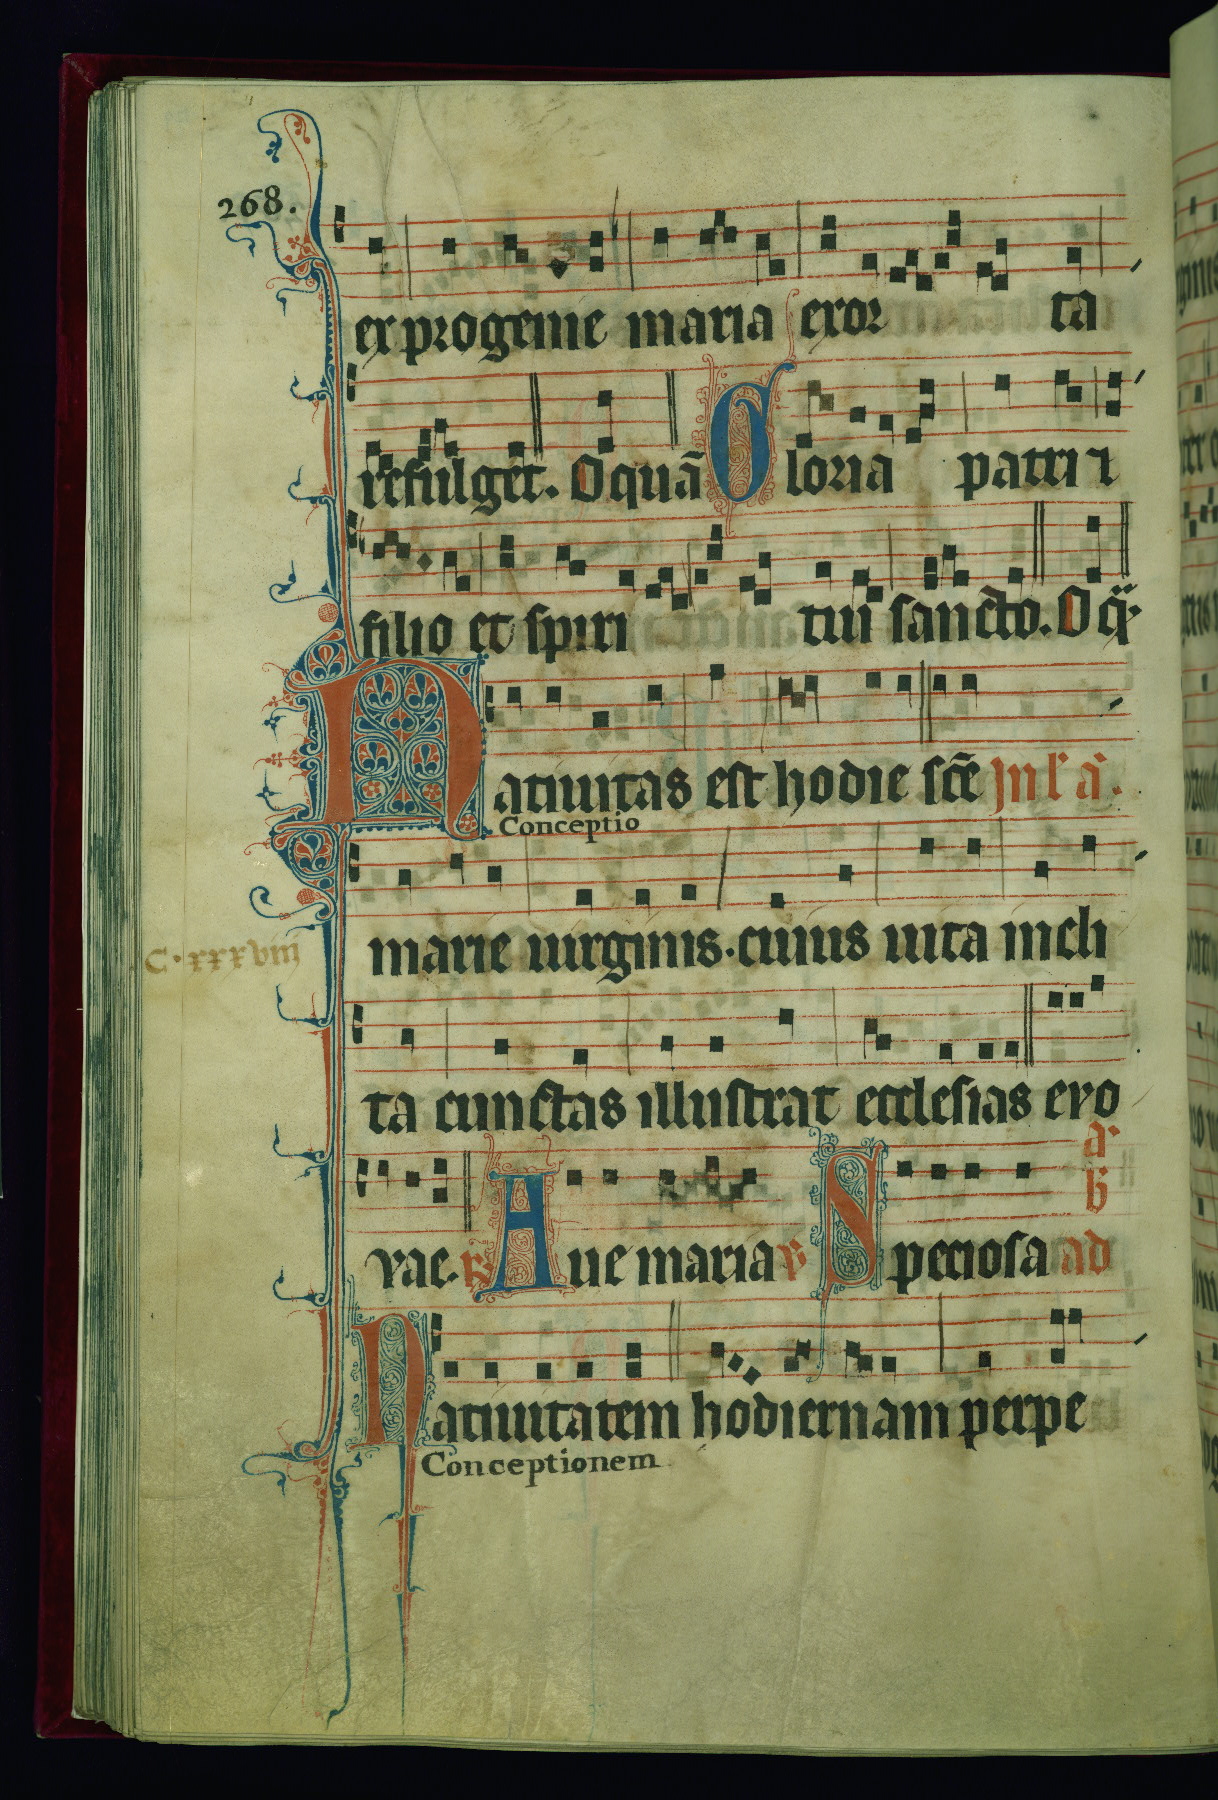 268.
ex progenie maria exor ta
refulget. O quā Gloria patri ⁊
filio et spiri tui sancto. O q̄
Natiuitas est hodie scē Jn l' a.
Conceptio
marie uirginis. cuius uita incli
C. xxxviii
ta cunctas illustrat ecclesias e v o
v a e. ℟ Aue maria ℣ Speciosa ad
a
b
Natiuitatem hodiernam perpe
Conceptionem